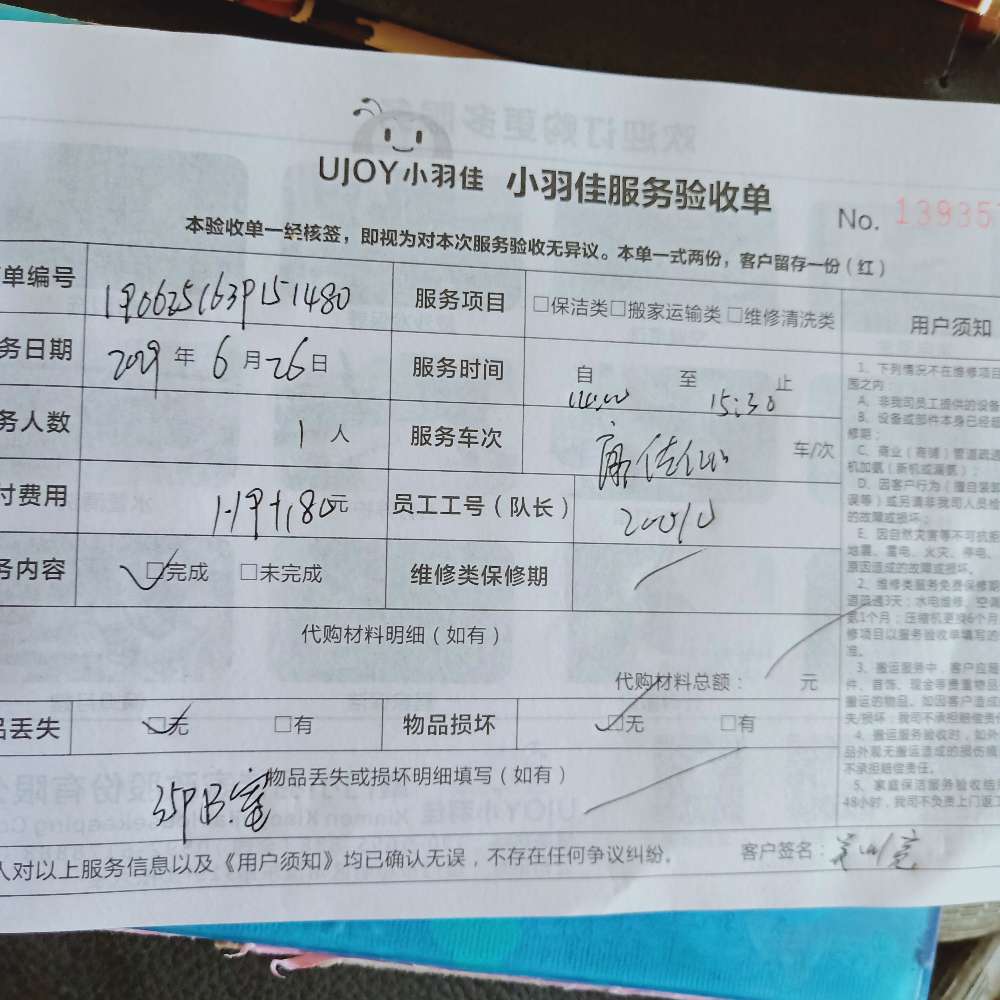 UJOY小羽佳 小羽佳服务验收单
No. 13935
本验收单一经核签，即视为对本次服务验收无异议。本单一式两份，客户留存一份（红）
单编号 1906251639151480 服务项目 □保洁类□搬家运输类□维修清洗类 用户须知
务日期 年 6 月 26 日 服务时间 自 至 15:30 止
务人数 1 人 服务车次 车/次
付费用 元 员工工号（队长）
务内容 □完成 □未完成 维修类保修期
代购材料明细（如有）
代购材料总额： 元
品丢失 □无 □有 物品损坏 □无 □有
物品丢失或损坏明细填写（如有）
人对以上服务信息以及《用户须知》均已确认无误，不存在任何争议纠纷。 客户签名：
1、下列情况不在维修项目
围之内：
A、非我司员工提供的设备
B、设备或部件本身已经超
修期；
C、商业（商铺）管道疏通
机加氨（新机或漏氨）；
D、因客户行为（擅自装卸
误等）或另请非我司人员维
的故障或损坏；
E、因自然灾害等不可抗拒
地震、雷电、火灾、停电、
原因造成的故障或损坏。
2、维修类服务免费保修期
道疏通3天；水电维修、空调
氨1个月；压缩机更换6个月
修项目以服务验收单填写的
准。
3、搬运服务中，客户应照
件、首饰、现金等贵重物品
搬运的物品，如因客户造成
失/损坏，我司不承担赔偿责
4、搬运服务验收时，如外
品外观无搬运造成的损伤痕
不承担赔偿责任。
5、家庭保洁服务验收结
48小时，我司不负责上门返工